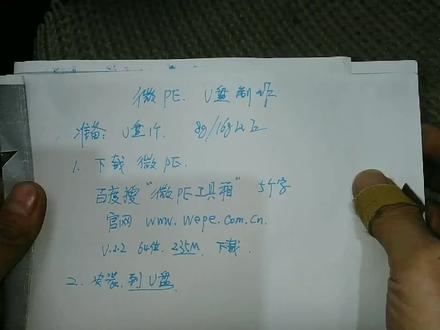 微PE. U盘制作
准备: U盘1个. 8g/16g以上
1. 下载 微PE.
百度搜"微PE工具箱" 5个字
官网 www.wepe.com.cn.
V.2.2 64位. 235M. 下载.
2. 安装 到U盘